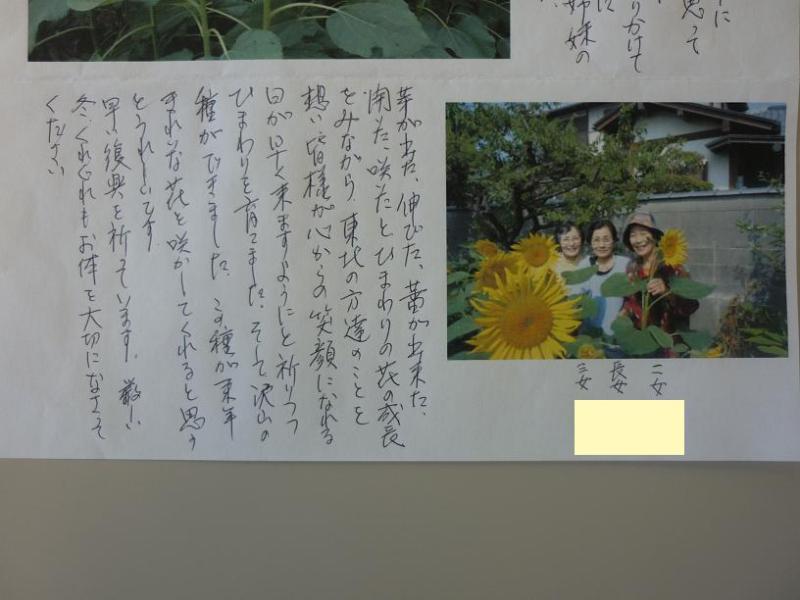 に
思って
りかけて
に
姉妹の
芽が出た、伸びた、蕾が出来た、
開いた、咲いたとひまわりの花の成長
をみながら、東北の方達のことを
想い皆様が心からの笑顔になれる
日が早く来ますようにと祈りつつ
ひまわりを育てました。そして沢山の
種ができました。この種が来年
きれいな花を咲かしてくれると思う
とうれしいです。
早い復興を祈っています。厳しい
冬、くれぐれもお体を大切になさって
ください
二女
長女
三女